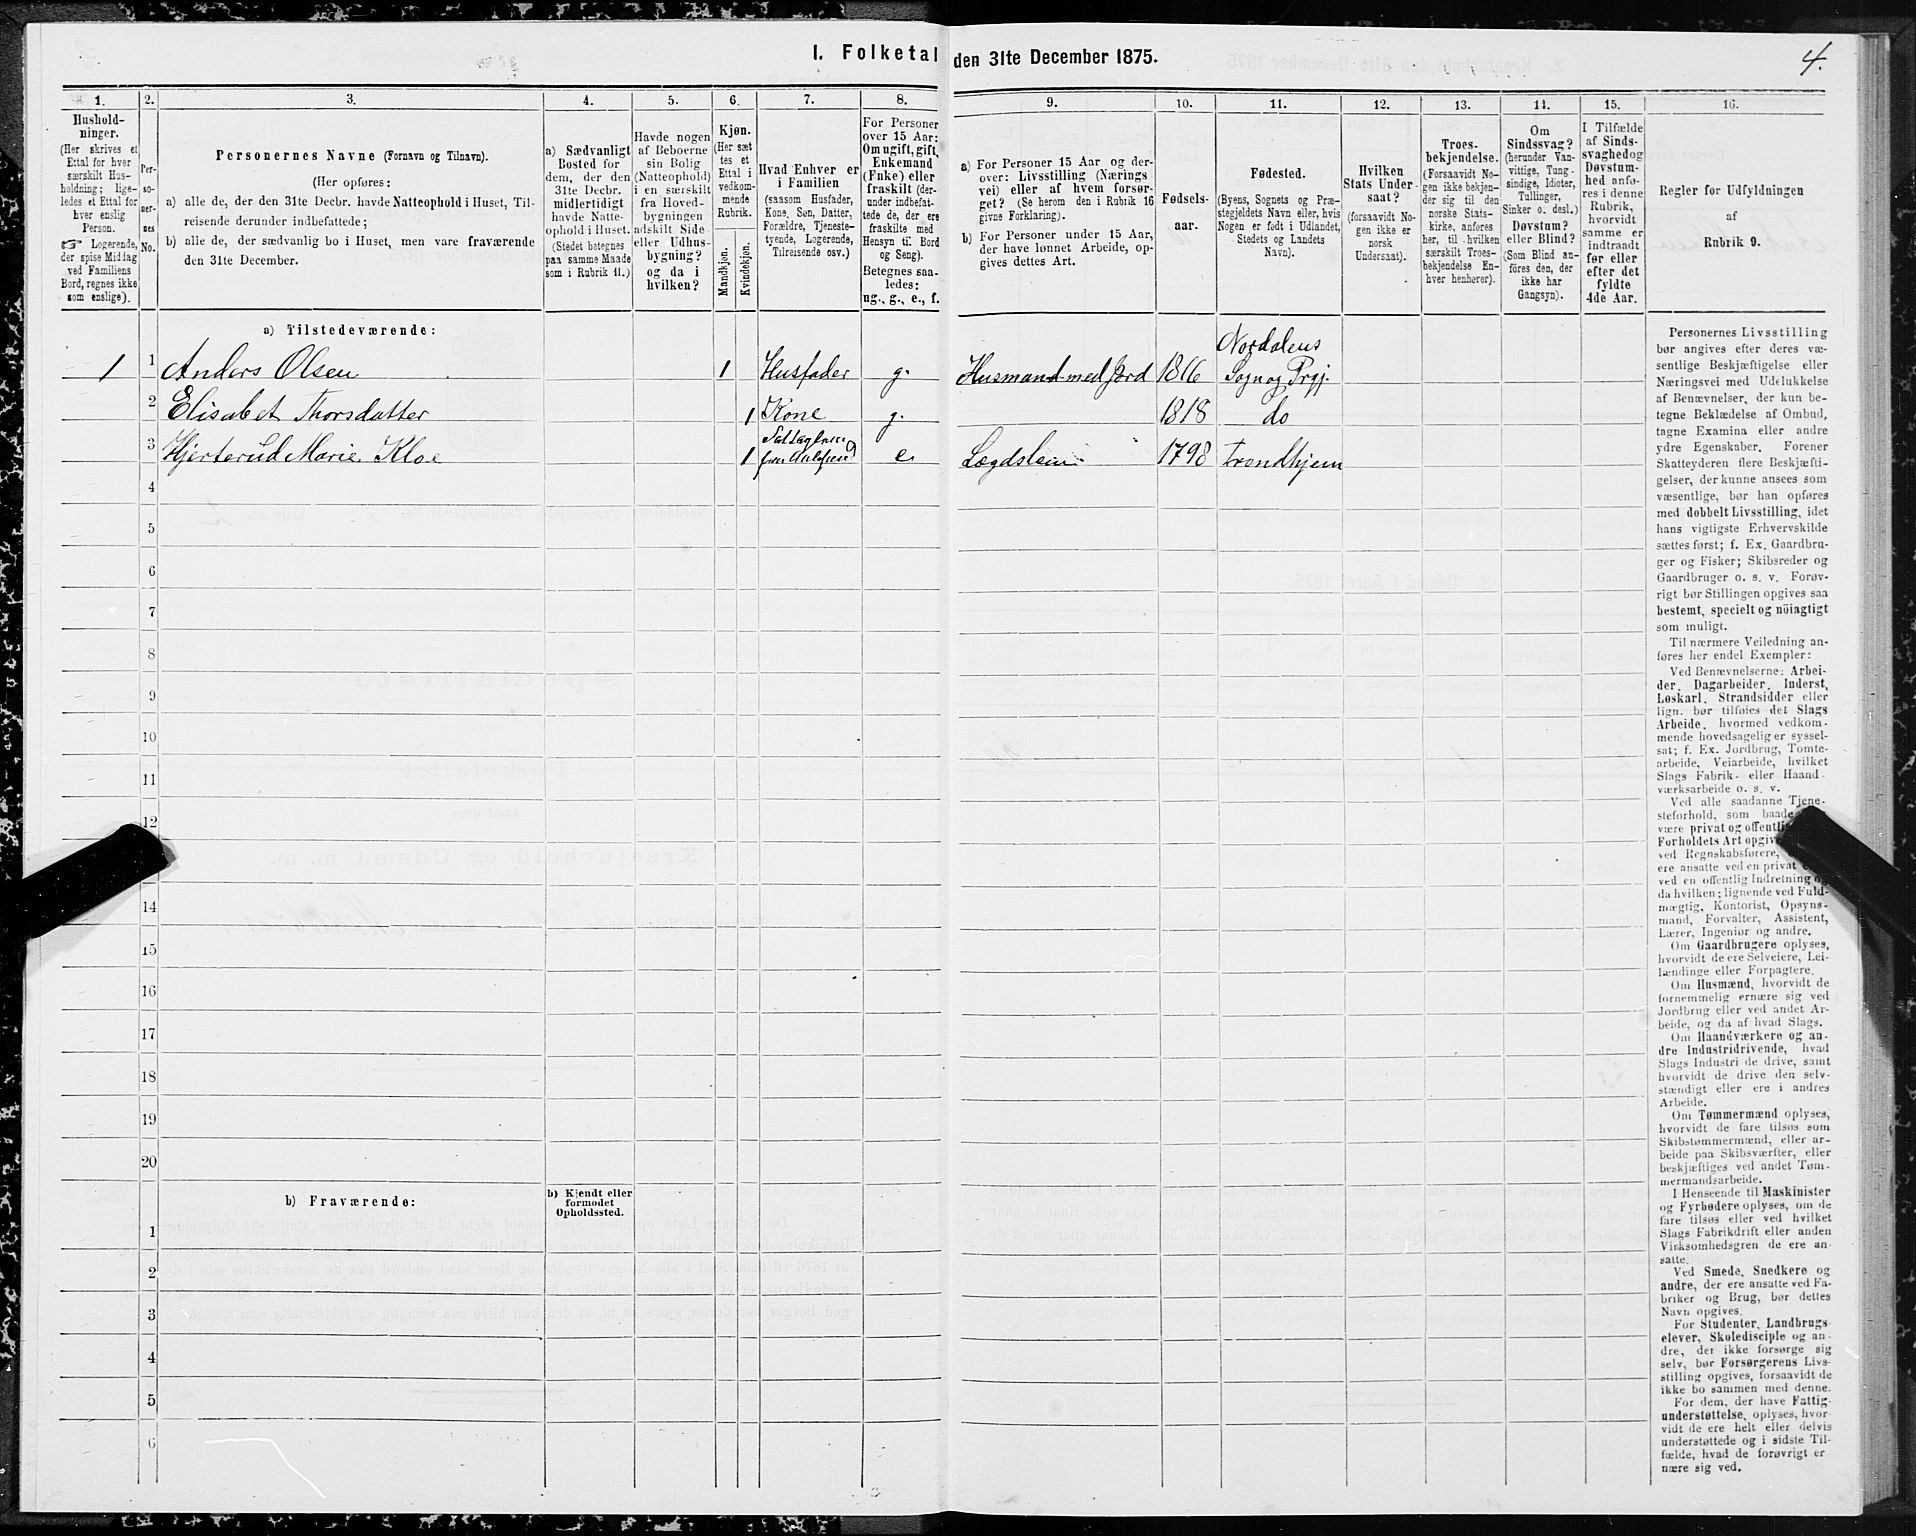 4.
I. Folketal den 31te December 1875.
1. 2. 3. 4. 5. 6. 7. 8. 9. 10. 11. 12. 13. 14. 15. 16.
Hushold-
ninger.
(Her skrives et
Ettal for hver
særskilt Hus-
holdning; lige-
ledes et Ettal for
hver enslig
Person.
☞ Logerende,
der spise Middag
ved Familiens
Bord, regnes ikke
som enslige).
Per-
so-
ner-
nes
No.
Personernes Navne (Fornavn og Tilnavn).
(Her opføres:
a) alle de, der den 31te Decbr. havde Natteophold i Huset, Til-
reisende derunder indbefattede;
b) alle de, der sædvanlig bo i Huset, men vare fraværende
den 31te December.
a) Sædvanligt
Bosted for
dem, der den
31te Decbr.
midlertidigt
havde Natte-
ophold i Huset.
(Stedet betegnes
paa samme Maade
som i Rubrik 11.)
Havde nogen
af Beboerne
sin Bolig
(Natteophold)
i en særskilt
fra Hoved-
bygningen
adskilt Side-
eller Udhus-
bygning?
og da i
hvilken?
Kjøn.
(Her sæt
tes et
Ettal i
vedkom-
mende
Rubrik.
Mandkjøn.
Kvindekjøn.
Hvad Enhver er
i Familien
(saasom Husfader,
Kone, Søn, Datter,
Forældre, Tjeneste-
tyende, Logerende,
Tilreisende osv.)
For Personer
over 15 Aar:
Om ugift, gift,
Enkemand
(Enke) eller
fraskilt (der-
under indbefat-
tede de, der ere
fraskilte med
Hensyn til Bord
og Seng).
Betegnes saa-
ledes:
ug., g., e., f.
a) For Personer 15 Aar og der-
over: Livsstilling (Nærings
vei) eller af hvem forsør-
get? (Se herom den i Rubrik 16
givne Forklaring).
b) For Personer under 15 Aar,
der have lønnet Arbeide, op-
gives dettes Art.
Fødsels-
aar.
Fødested.
(Byens, Sognets og Præ-
stegjeldets Navn eller, hvis
Nogen er født i Udlandet,
Stedets og Landets
Navn).
Hvilken
Stats Under-
saat?
(forsaavidt No-
gen ikke er
norsk
Undersaat).
Troes-
bekjendelse.
(Forsaavidt No-
gen ikke bekjen-
der sig til den
norske Stats-
kirke, anføres
her, til hvilken
særskilt Troes-
bekjendelse En-
hver henhører).
Om
Sindssvag?
(herunder Van-
vittige, Tung-
sindige, Idioter,
Tullinger,
Sinker o. desl.)
Døvstum?
eller Blind?
(Som Blind an-
føres den, der
ikke har
Gangsyn).
I Tilfælde
af Sinds-
svaghed og
Døvstum-
hed anfø-
res i denne
Rubrik,
hvorvidt
samme er
indtraadt
før eller
efter det
fyldte
4de Aar.
Regler for Udfyldningen
af
Rubrik 9.
a) Tilstedeværende:
1 1 Anders Olsen 1 Husfader g. Husmand med Jord 1816 Nordalens Sogn og Prgj.
2 Elisabet Thorsdatter 1 Kone g. 1818 do
3 Hjerterud Marie Kloe 1 e. 1798 Trondhjem
4
5
6
7
8
9
10
11
12
14
15
16
17
18
19
20
b) Fraværende:
b) Kjendt eller
formodet
Opholdssted.
1
2
3
4
5
6
Personernes Livsstilling
bør angives efter deres væ-
sentlige Beskjæftigelse eller
Næringsvei med Udelukkelse
af Benævnelser, der kun be-
tegne Beklædelse af Ombud,
tagne Examina eller andre
ydre Egenskaber. Forener
Skatteyderen flere Beskjæfti-
gelser, der kunne ansees som
væsentlige, bør han opføres
med dobbelt Livsstilling, idet
hans vigtigste Erhvervskilde
sættes først; f. Ex. Gaardbru-
ger og Fisker; Skibsreder og
Gaardbruger o. s. v. Forøv-
rigt bør Stillingen opgives saa
bestemt, specielt og nöiagtigt
som muligt.
Til nærmere Veiledning an-
føres her endel Exempler:
Ved Benævnelserne: Arbei-
der, Dagarbeider, Inderst,
Løskarl, Strandsidder eller
lign. bør tilføies det Slags
Arbeide, hvormed vedkom-
mende hovedsagelig er syssel-
sat; f. Ex. Jordbrug, Tomte-
arbeide, Veiarbeide, hvilket
Slags Fabrik- eller Haand-
værksarbeide o. s. v.
Ved alle saadanne Tjene-
steforhold, som baade
være privat og offentlig
Forholdets Art opgiv
ved Regnskabsførere,
ere ansatte ved en privat
ved en offentlig Indretning og
da hvilken; lignende ved Fuld-
mægtig, Kontorist, Opsyns-
mand, Forvalter, Assistent,
Lærer, Ingeniør og andre.
Om Gaardbrugere oplyses,
hvorvidt de ere Selveiere, Lei-
lændinge eller Forpagtere.
Om Husmænd, hvorvidt de
fornemmelig ernære sig ved
Jordbrug eller ved andet Ar-
beide, og da af hvad Slags.
Om Haandværkere og an-
dre Industridrivende, hvad
Slags Industri de drive, samt
hvorvidt de drive den selv-
stændigt eller ere i andres
Arbeide.
Om Tømmermænd oplyses,
hvorvidt de fare tilsøs som
Skibstømmermænd, eller ar-
beide paa Skibsværfter, eller
beskjæftiges ved andet Tøm-
mermandsarbeide.
I Henseende til Maskinister
og Fyrbødere oplyses, om de
fare tilsøs eller ved hvilket
Slags Fabrikdrift eller anden
Virksomhedsgren de ere an-
satte.
Ved Smede, Snedkere og
andre, der ere ansatte ved Fa-
briker og Brug, bør dettes
Navn opgives.
For Studenter, Landbrugs-
elever, Skoledisciple og an-
dre, der ikke forsørge sig
selv, bør Forsørgerens Livs-
stilling opgives, forsaavidt de
ikke bo sammen med denne.
For dem, der have Fattig-
understøttelse, oplyses, hvor-
vidt de ere helt eller delvis
understøttede og i sidste Til-
fælde, hvad de forøvrigt er
nære sig ved.